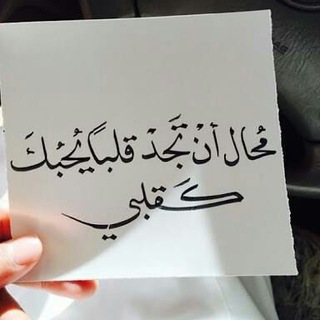 مُحال أنْ تَجدْ قلباً يُحبْكَ
كَقلبي